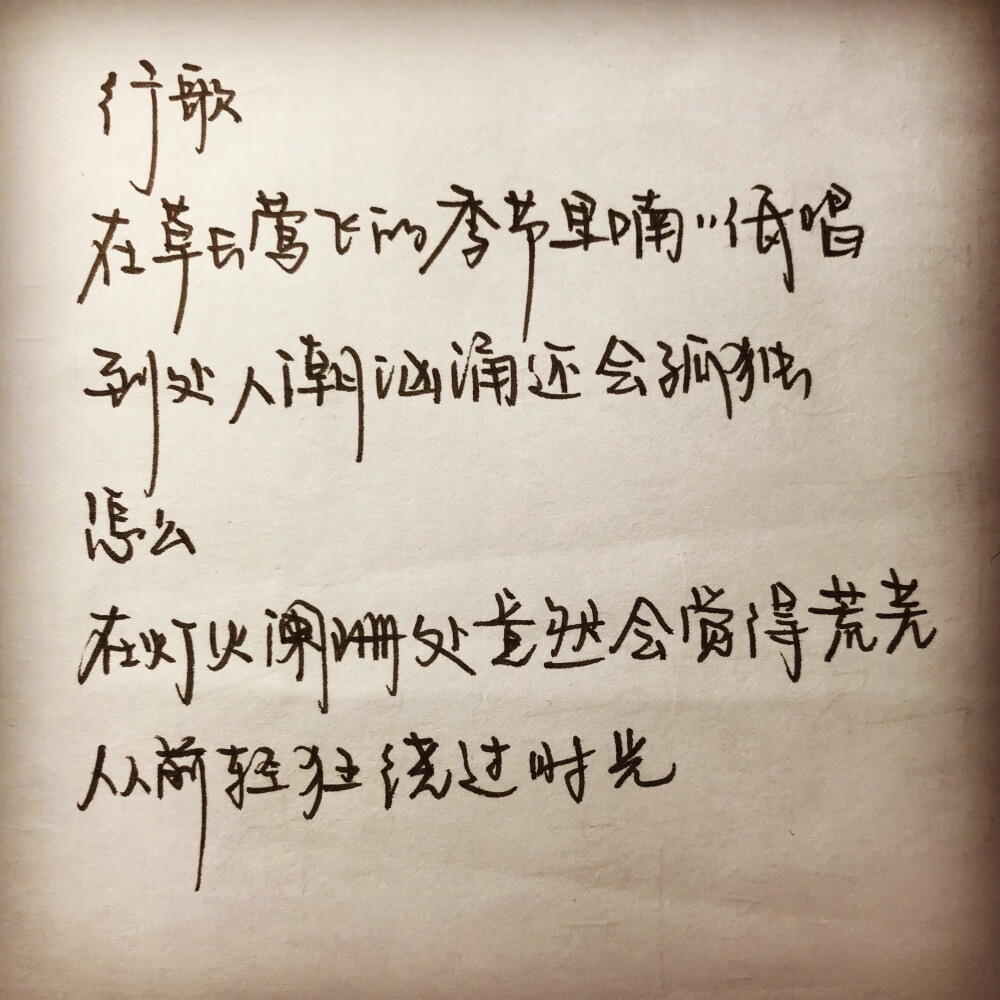 行歌
在草长莺飞的季节里喃〃低唱
到处人潮汹涌还会孤独
怎么
在灯火阑珊处竟然会赏得荒芜
从前轻狂绕过时光